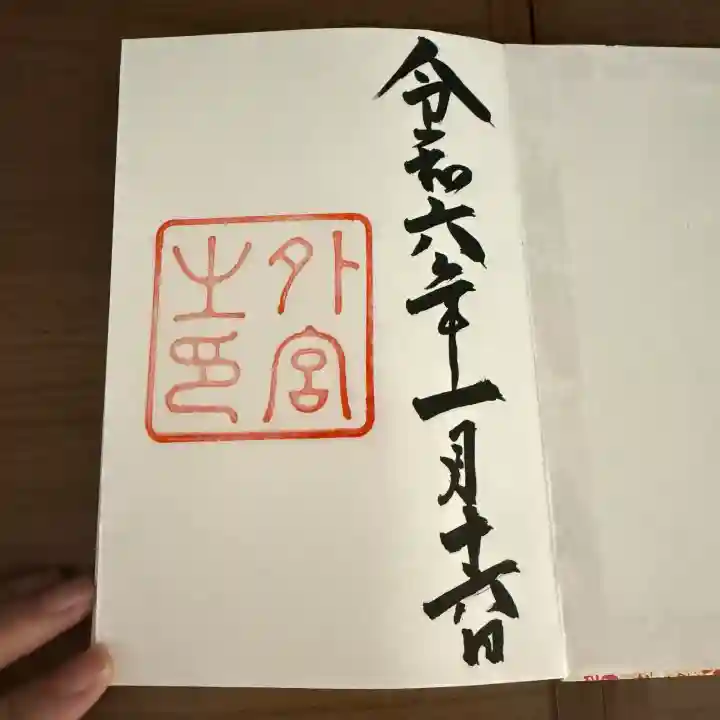 令和六年一月十六日
外宮
之印